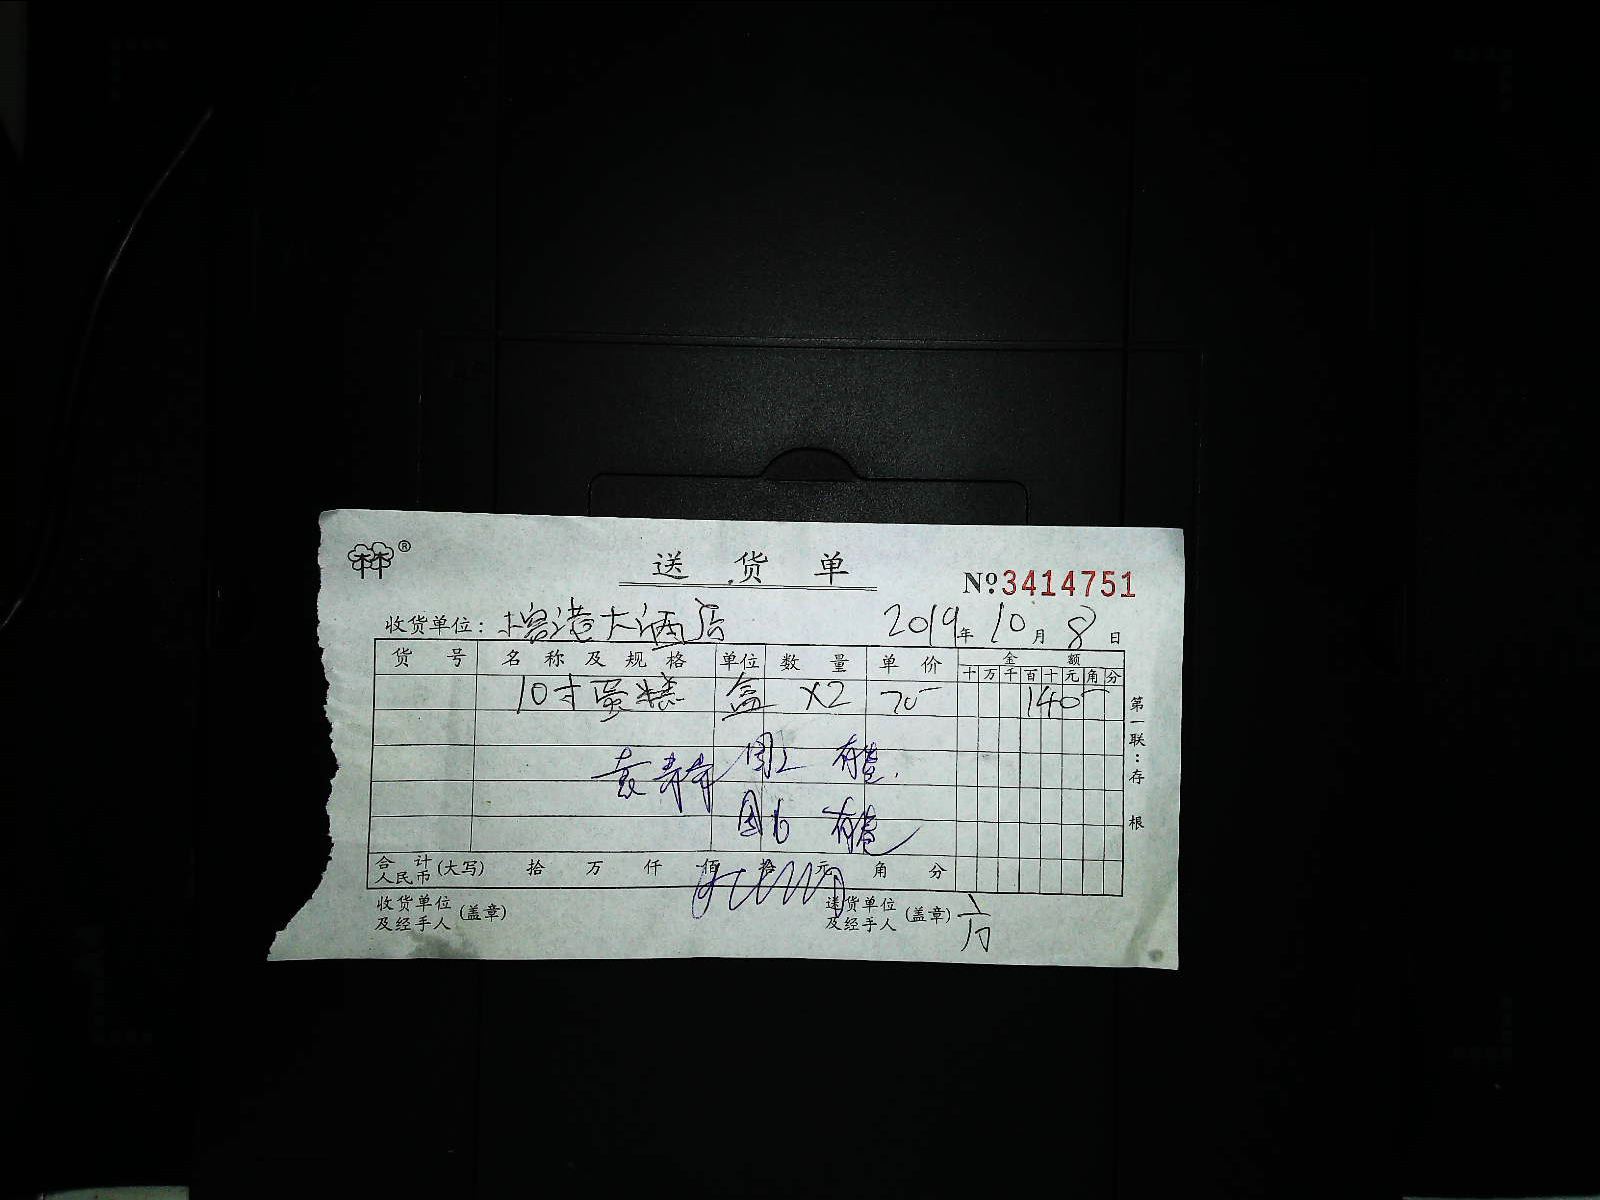 林®
送 货 单
№3414751
收货单位: 大酒店 2019年10月8日
货 号 名 称 及 规 格 单位 数 量 单 价 金 额
十万千百十元角分
10寸蛋糕 盒 X2 70 140
第一联:存根
合计人民币(大写) 拾 万 仟 佰 拾 元 角 分
收货单位及经手人(盖章) 送货单位及经手人(盖章)